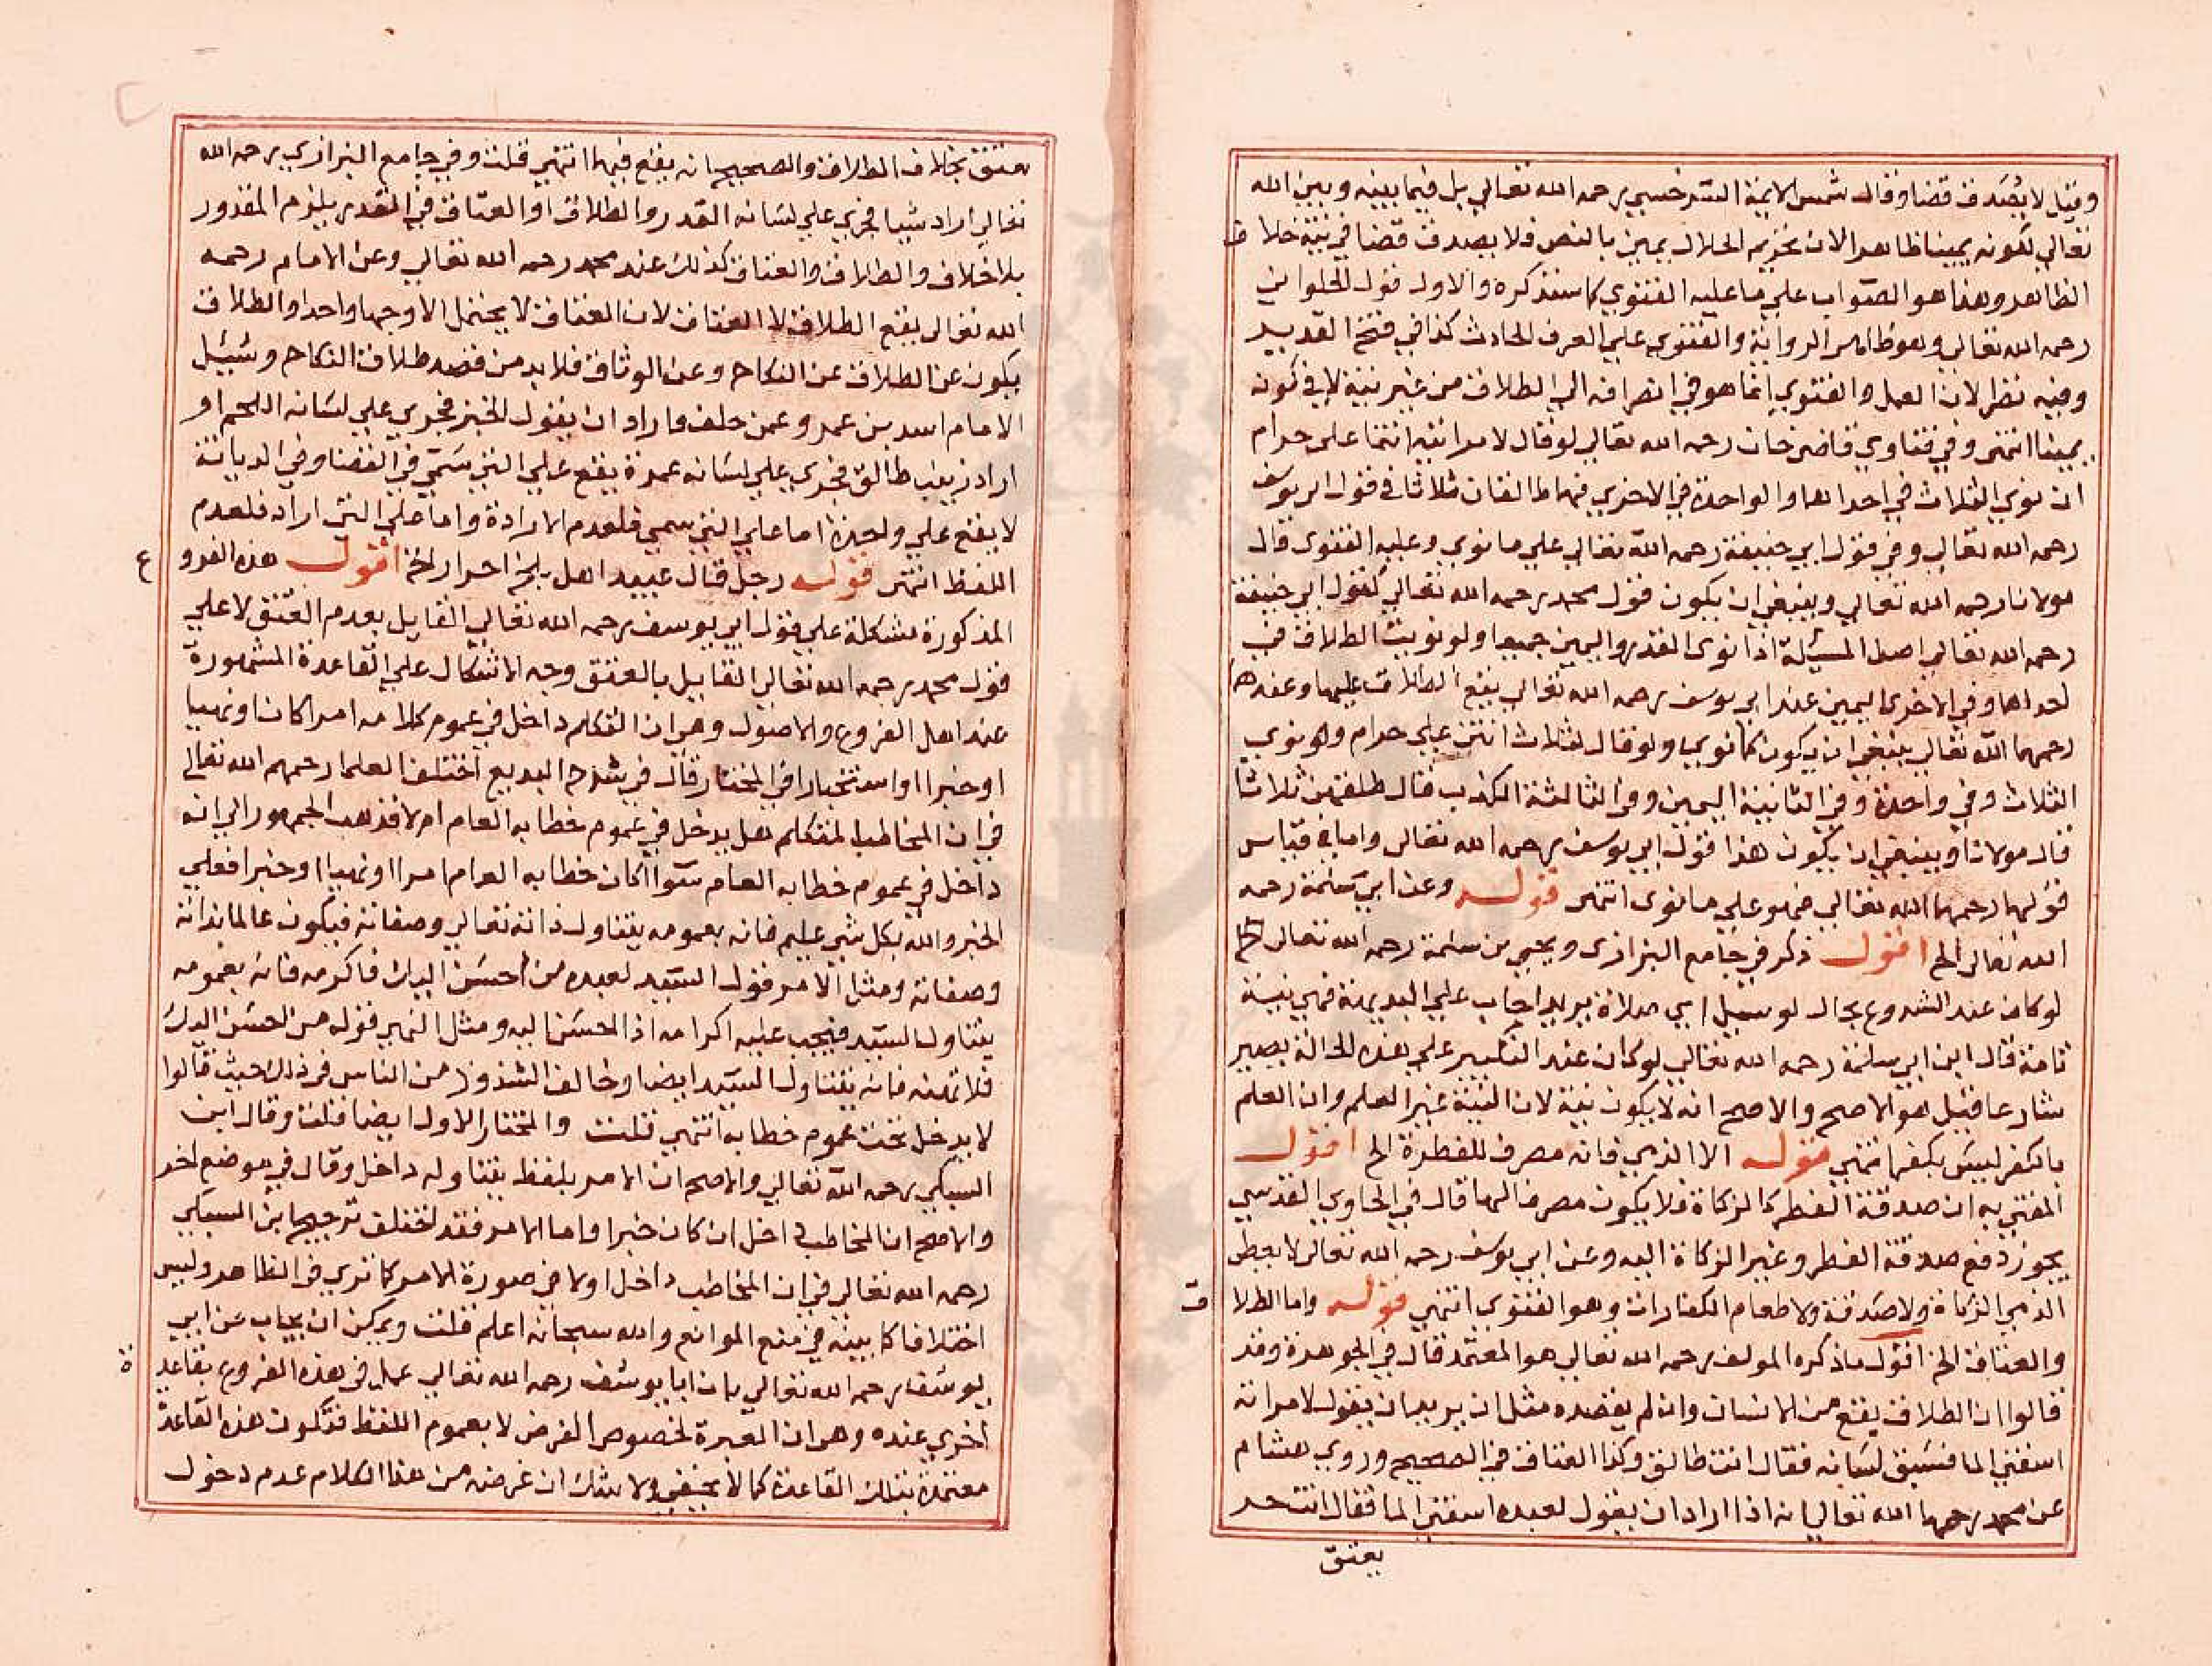 وقيل لا يصدق قضا وقال شمس الايمة السرخسي رحمه الله تعالي بل فيما بينه وبين الله
تعالي لكونه يمينا ظاهرا لان تحريم الحلال يمين بالنص فلا يصدق قضا في نيته خلاف
الظاهر وهذا هو الصواب علي ما عليه الفتوي كما سنذكره والاول قول الحلواني
رحمه الله تعالي وهو ظاهر الرواية والفتوي علي العرف الحادث كذا في فتح القدير
وفيه نظر لان العمل والفتوي انما هو في انصرافه الي الطلاق من غير نية لا في كونه
يمينا انتهى وفي فتاوي قاضي خان رحمه الله تعالي لو قال لامراتيه انتما علي حرام
ان نوي الثلاث في احداهما والواحدة في الاخري فهما طالقان ثلاثا في قول ابي يوسف
رحمه الله تعالي وفي قول ابي حنيفة رحمه الله تعالي علي ما نوي وعليه الفتوى قال
مولانا رحمه الله تعالي وينبغي ان يكون قول محمد رحمه الله تعالي كقول ابي حنيفة
رحمه الله تعالي اصل المسيلة اذا نوى النذر واليمين جميعا ولو نويت الطلاق في
احداهما وفي الاخرى اليمين عند ابي يوسف رحمه الله تعالي يقع الطلاق عليهما وعندهما
رحمهما الله تعالي ينبغي ان يكون كما نوي ولو قال لثلاث انتن علي حرام ولو نوي
الثلاث في واحدة وفي الثانية اليمين وفي الثالثة الكذب قال طلقهن ثلاثا
قال مولانا وينبغي ان يكون هذا قول ابي يوسف رحمه الله تعالى واما في قياس
قولهما رحمهما الله تعالي فهو علي ما نوى انتهى قوله وعن ابي سلمة رحمه
الله تعالى الخ اقول ذكر في جامع البزازي ويحيي بن سلمة رحمه الله تعالى
لو كان عند الشروع بحال لو سيل اي صلاة يريد اجاب علي البديهة فهي نية
تامة قال ابن ابي سلمة رحمه الله تعالي لو كان عند التكبير علي هذه الحالة يصير
شارعا قيل هو الاصح والاصح انه لا يكون نية لان النية غير العلم وان العلم
بالكفر ليس بكفر انتهي قوله الا الذمي فانه مصرف للفطرة الخ اقول
المفتي به ان صدقة الفطر كالزكاة فلا يكون مصرفا لها قال في الحاوي القدسي
يجوز دفع صدقة الفطر وغير الزكاة اليه وعن ابي يوسف رحمه الله تعالى لا يعطى
الذمي الزكاة ولا صدقة ولا طعام الكفارات وهو الفتوي انتهي قوله واما الطلاق
والعتاق الخ اقول ما ذكره المولف رحمه الله تعالي هو المعتمد قال في الجوهرة وقد
قالوا ان الطلاق يقع من الانسان وان لم يقصده مثل ان يريد ان يقول لامراته
اسقني الما فسبق لسانه فقال انت طالق وكذا العتاق في الصحيح وروي هشام
عن محمد رحمهما الله تعالي انه اذا اراد ان يقول لعبده اسقني الما فقال انت حر
يعتق
يعتق بخلاف الطلاق والصحيح انه يقع فيهما انتهي قلت وفي جامع البزازي رحمه الله
تعالي اراد شيا فجري علي لسانه القدر والطلاق او العتاق في النذر يلزم المنذور
بلا خلاف والطلاق والعتاق كذلك عند محمد رحمه الله تعالي وعن الامام رحمه
الله تعالى يقع الطلاق لا العتاق لان العتاق لا يحتمل الا وجها واحدا والطلاق
يكون عن الطلاق عن النكاح وعن الوثاق فلا بد من قصد طلاق النكاح وسئيل
الامام اسد بن عمرو عمن حلف واراد ان يقول الخبز فجري علي لسانه اللحم او
اراد زينب طالق فجري علي لسانه عمرة يقع علي التي سمي في القضا وفي الديانة
لا يقع علي واحدة اما علي التي سمي فلعدم الارادة واما علي التي اراد فلعدم
اللفظ انتهى قوله رجل قال عبيد اهل بلخ احرار الخ اقول هذه الفروع
المذكورة مشكلة علي قول ابي يوسف رحمه الله تعالي القايل بعدم العتق لا علي
قول محمد رحمه الله تعالي القايل بالعتق وجه الاشكال علي القاعدة المشهورة
عند اهل الفروع والاصول وهي ان المتكلم داخل في عموم كلامه امرا كان او نهيا
او خبرا او استخبارا في المختار قال في شرح البديع اختلف العلما رحمهم الله تعالي
في ان المخاطب المتكلم هل يدخل في عموم خطابه العام ام لا فذهب الجمهور الي انه
داخل في عموم خطابه العام سوآ اكان خطابه العام امرا او نهيا او خبرا فعلي
الخبر والله بكل شي عليم فانه بعمومه يتناول ذاته تعالي وصفاته فيكون عالما بذاته
وصفاته ومثل الامر قول السيد لعبده من احسن اليك فاكرمه فانه بعمومه
يتناول السيد فيجب عليه اكرامه اذا احسن اليه ومثل النهي قوله من احسن اليك
فلا تهنه فانه يتناول السيد ايضا وخالف الشذوذ من الناس في ذلك حيث قالوا
لا يدخل تحت عموم خطابه انتهي قلت والمختار الاول ايضا قلت وقال ابن
السبكي رحمه الله تعالي والاصح ان الامر بلفظ يتناوله داخل وقال في موضع اخر
والاصح ان المخاطب داخل ان كان خبرا واما الامر فقد اختلف ترجيح ابن السبكي
رحمه الله تعالي في ان المخاطب داخل او لا في صورة الامر كما تري في الظاهر وليس
اختلافا كما بينه في منع الموانع والله سبحانه اعلم قلت ويمكن ان يجاب عن ابي
يوسف رحمه الله تعالي بان ابا يوسف رحمه الله تعالي عمل في هذه الفروع بقاعدة
اخري عنده وهي ان العبرة لخصوص الغرض لا بعموم اللفظ فتكون هذه القاعدة
بتلك القاعدة كما لا يخفي ولا شك ان غرضه من هذا الكلام عدم دخول